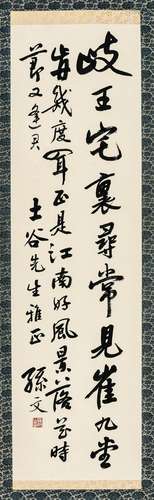 歧王宅裏尋常見崔九堂
前幾度聞正是江南好風景落花時
節又逢君
土谷先生雅正
孫文